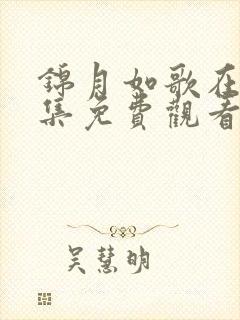 錦月如歌在
集免費觀看
吴慧明